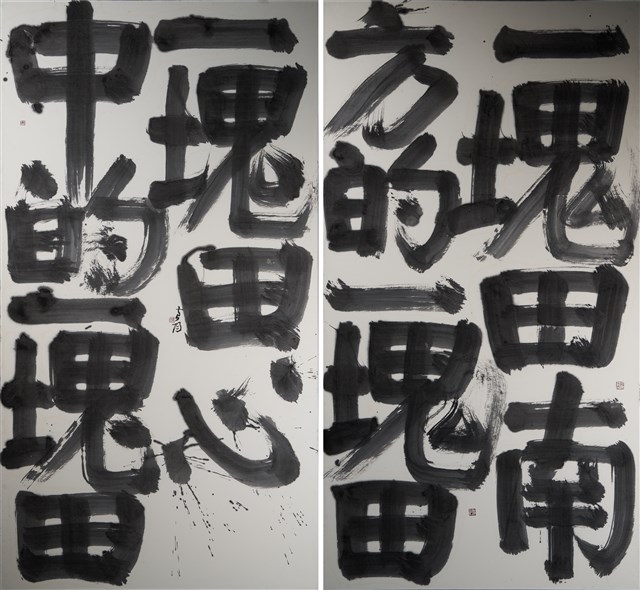 一塊田南
方的一塊田
一塊田心
中的一塊田